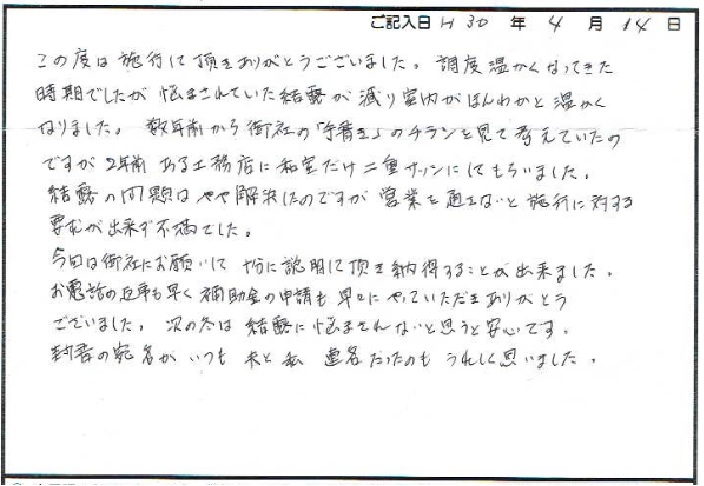 ご記入日 H 30 年 4 月 14 日
この度は施行して頂きありがとうございました。調度温かくなってきた
時期でしたが悩まされていた結露が減り室内がほんわかと温かく
なりました。数年前から御社の「手書き」のチラシを見て考えていたの
ですが2年前ある工務店に和室だけ二重サッシにしてもらいました。
結露の問題はやや解決したのですが営業を通さないと施行に対する
要望が出来ず不満でした。
今回は御社にお願いして十分に説明して頂き納得することが出来ました。
お電話の返事も早く補助金の申請も早々にやっていただきありがとう
ございました。次の冬は結露に悩まされないと思うと安心です。
封書の宛名がいつも夫と私連名だったのもうれしく思いました。